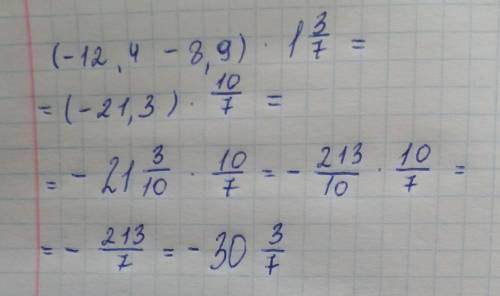 (-12,4 - 8,9) · 1 3/7 =
= (-21,3) · 10/7 =
= - 21 3/10 · 10/7 = - 213/10 · 10/7 =
= - 213/7 = - 30 3/7